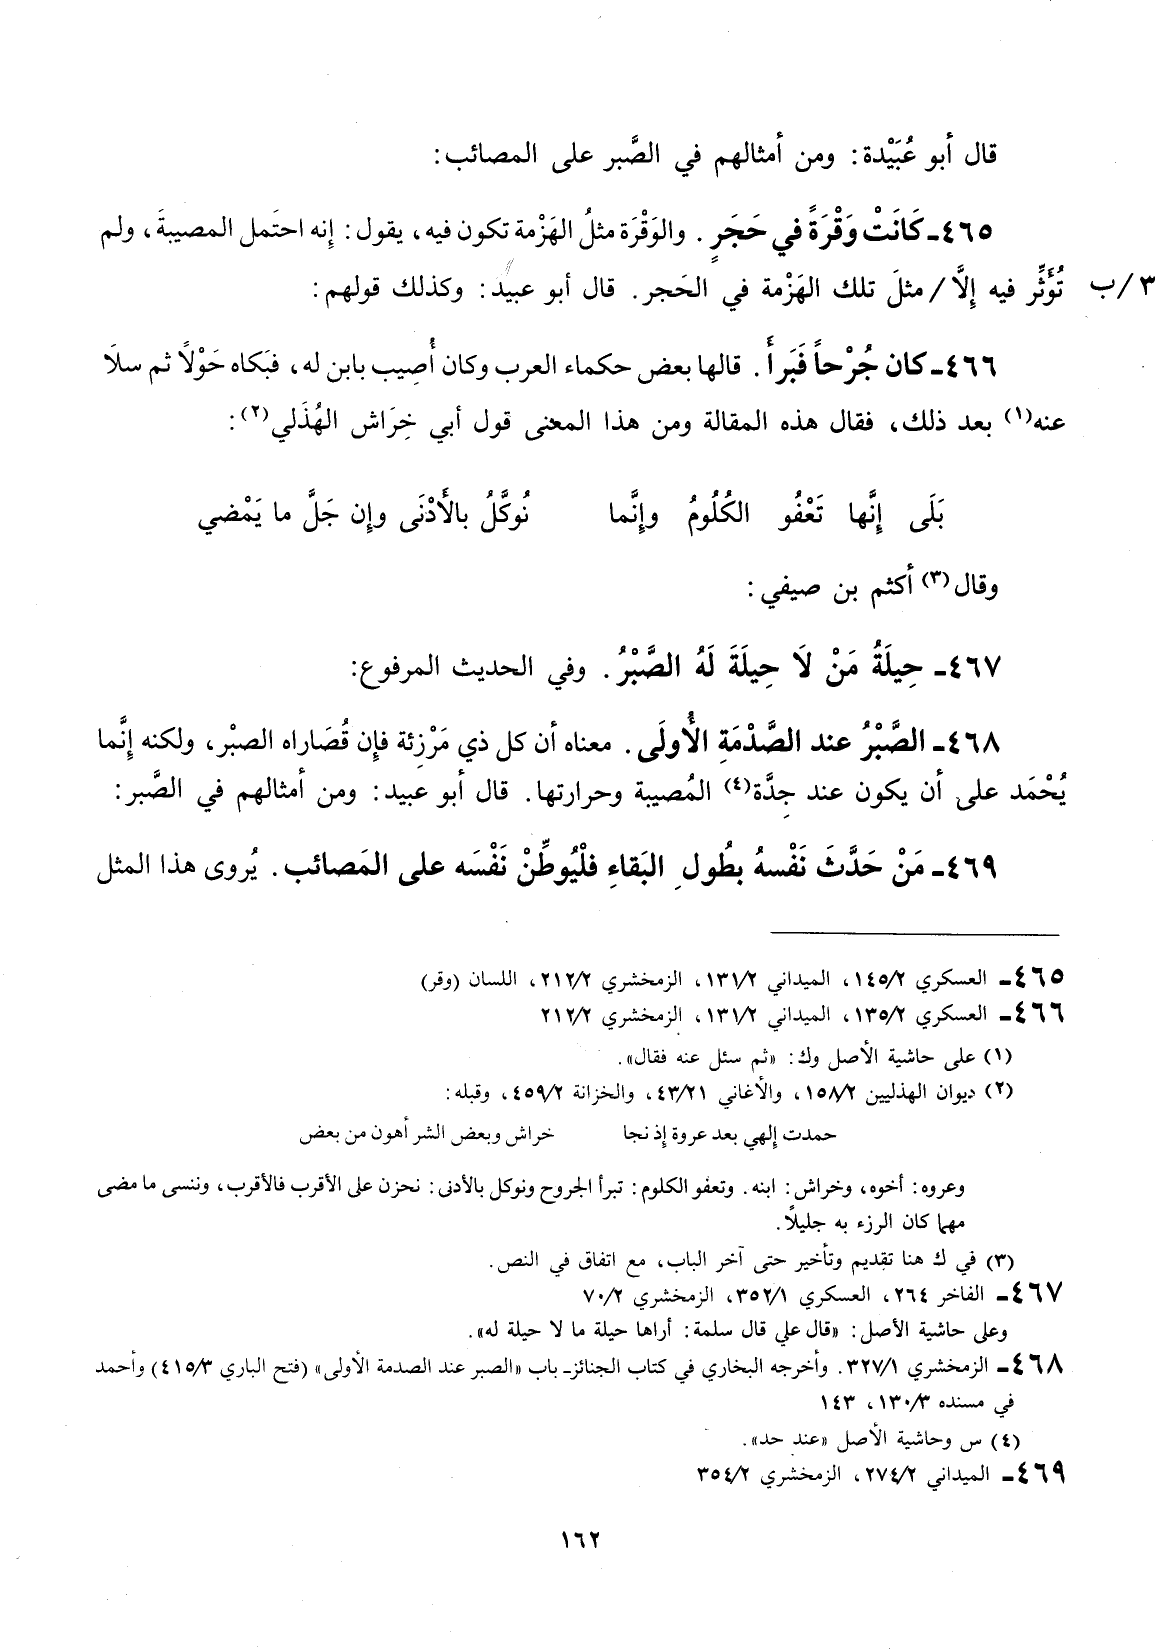 قال أبو عُبَيْدة: ومن أمثالهم في الصَّبر على المصائب:
٤٦٥ـ كَانَتْ وَقْرَةً في حَجَرٍ. والوَقْرَة مثلُ الهَزْمة تكون فيه، يقول: إنه احتَمل المصيبةَ، ولم
٣/ب تُؤَثِّر فيه إلَّا / مثلَ تلك الهَزْمة في الحَجر. قال أبو عبيد: وكذلك قولهم:
٤٦٦ـ كان جُرْحاً فَبَرأَ. قالها بعض حكماء العرب وكان أُصِيب بابن له، فبَكاه حَوْلاً ثم سلاَ
عنه(١) بعد ذلك، فقال هذه المقالة ومن هذا المعنى قول أبي خِرَاش الهُذَلي(٢):
بَلَى إنَّها تَعْفُو الكُلُومُ وإنَّما نُوكَّلُ بالأَدْنَى وإن جَلَّ ما يَمْضي
وقال(٣) أكثم بن صيفي:
٤٦٧ـ حِيلَةُ مَنْ لاَ حِيلَةَ لَهُ الصَّبْرُ. وفي الحديث المرفوع:
٤٦٨ـ الصَّبْرُ عند الصَّدْمَةِ الأُولَى. معناه أن كل ذي مَرْزِئة فإن قُصَاراه الصبْر، ولكنه إنَّما
يُحْمَد على أن يكون عند حِدَّة(٤) المُصيبة وحرارتها. قال أبو عبيد: ومن أمثالهم في الصَّبر:
٤٦٩ـ مَنْ حَدَّثَ نَفْسهُ بطُولِ البَقاءِ فلْيُوطِّنْ نَفْسَه على المَصائب. يُروى هذا المثل
٤٦٥ـ العسكري ١٤٥/٢، الميداني ١٣١/٢، الزمخشري ٢١٢/٢، اللسان (وقر)
٤٦٦ـ العسكري ١٣٥/٢، الميداني ١٣١/٢، الزمخشري ٢١٢/٢
(١) على حاشية الأصل وك: «ثم سئل عنه فقال».
(٢) ديوان الهذليين ١٥٨/٢، والأغاني ٤٣/٢١، والخزانة ٤٥٩/٢، وقبله:
حمدت إلهي بعد عروة إذ نجا خراش وبعض الشر أهون من بعض
وعروه: أخوه، وخراش: ابنه. وتعفو الكلوم: تبرأ الجروح ونوكل بالأدنى: نحزن على الأقرب فالأقرب، وننسى ما مضى
مهما كان الرزء به جليلاً.
(٣) في ك هنا تقديم وتأخير حتى آخر الباب، مع اتفاق في النص.
٤٦٧ـ الفاخر ٢٦٤، العسكري ٣٥٢/١، الزمخشري ٧٠/٢
وعلى حاشية الأصل: «قال علي قال سلمة: أراها حيلة ما لا حيلة له».
٤٦٨ـ الزمخشري ٣٢٧/١. وأخرجه البخاري في كتاب الجنائز ـ باب «الصبر عند الصدمة الأولى» (فتح الباري ٤١٥/٣) وأحمد
في مسنده ١٣٠/٣، ١٤٣
(٤) س وحاشية الأصل «عند حد».
٤٦٩ـ الميداني ٢٧٤/٢، الزمخشري ٣٥٤/٢
١٦٢